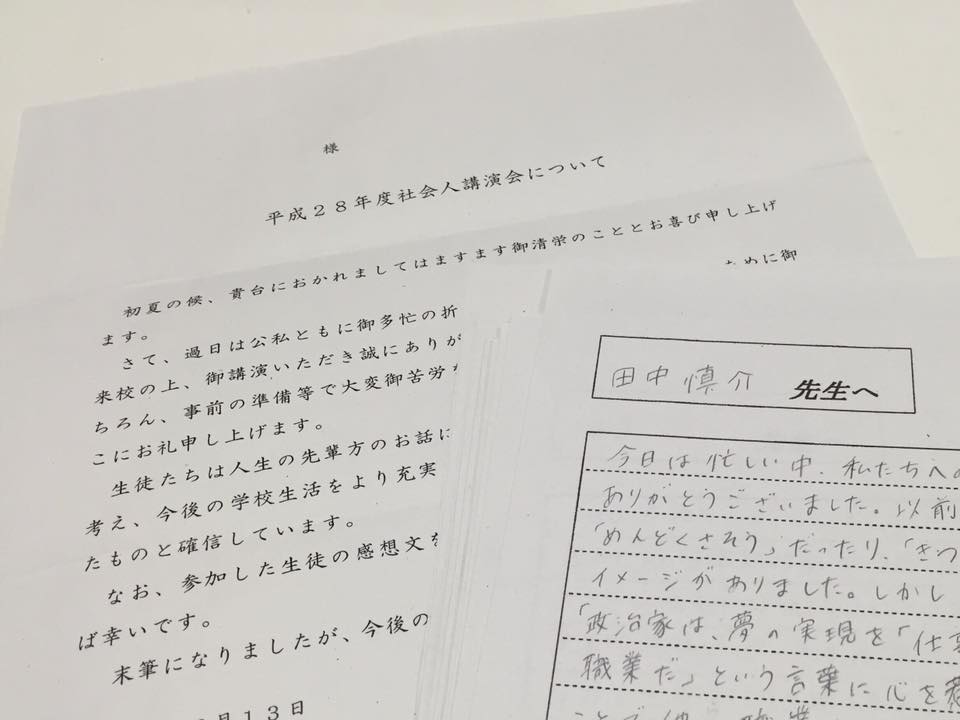 様
平成２８年度社会人講演会について
初夏の候、貴台におかれましてはますます御清栄のこととお喜び申し上げ
ます。
さて、過日は公私ともに御多忙の折
ために御
来校の上、御講演いただき誠にありが
ちろん、事前の準備等で大変御苦労
こにお礼申し上げます。
生徒たちは人生の先輩方のお話に
考え、今後の学校生活をより充実
たものと確信しています。
なお、参加した生徒の感想文を
ば幸いです。
末筆になりましたが、今後の
月１３日
田中慎介 先生へ
今日は忙しい中、私たちへの
ありがとうございました。以前
「めんどくさそう」だったり、「きつ
イメージがありました。しかし
「政治家は、夢の実現を「仕事
職業だ」という言葉に心を
ことで